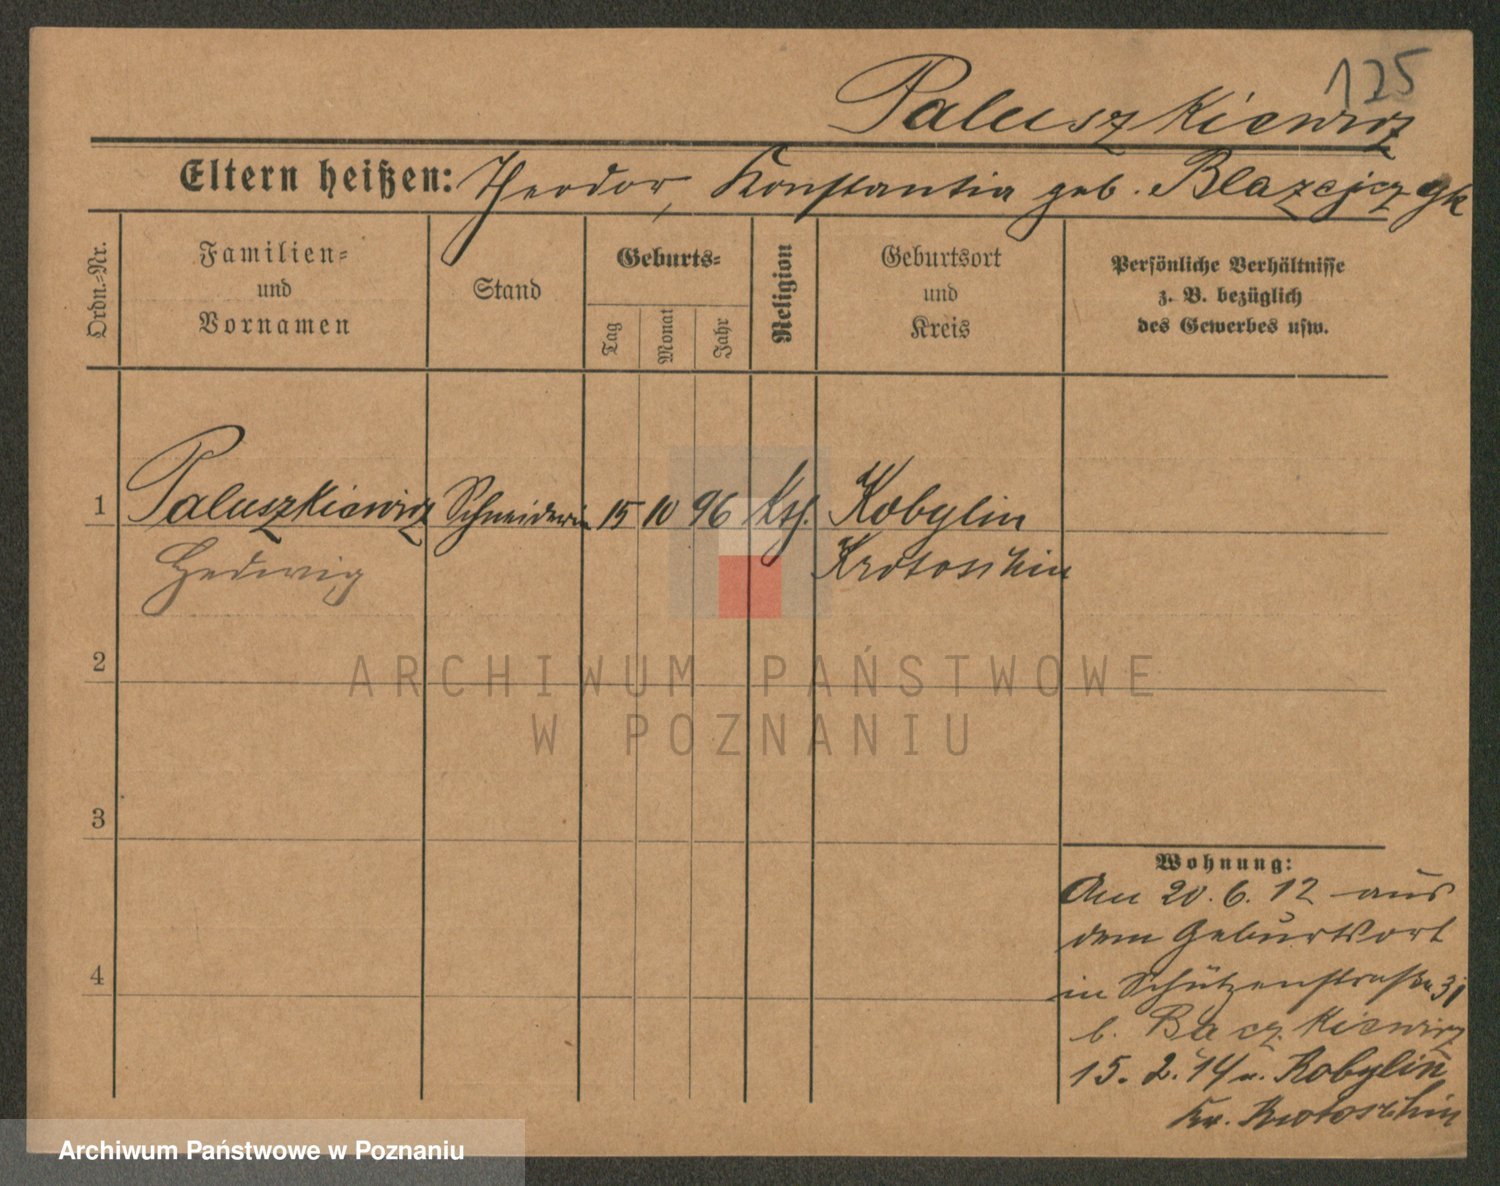 125
Paluszkiewicz
Eltern heißen: Theodor, Konstantia geb. Blazejczyk
Ordn.-Nr.
Familien-
und
Vornamen
Stand
Geburts-
Tag
Monat
Jahr
Religion
Geburtsort
und
Kreis
Persönliche Verhältnisse
z. B. bezüglich
des Gewerbes usw.
1 Paluszkiewicz Schneiderin 15 10 96 Kth. Kobylin
Hedwig Krotoschin
2
ARCHIWUM PAŃSTWOWE
W POZNANIU
3
Wohnung:
Am 20.6.12 aus
dem Geburtsort
4
in Schützenstraße 31
b. Baczkiewicz
15.2.14 n. Kobylin
Kr. Krotoschin
Archiwum Państwowe w Poznaniu